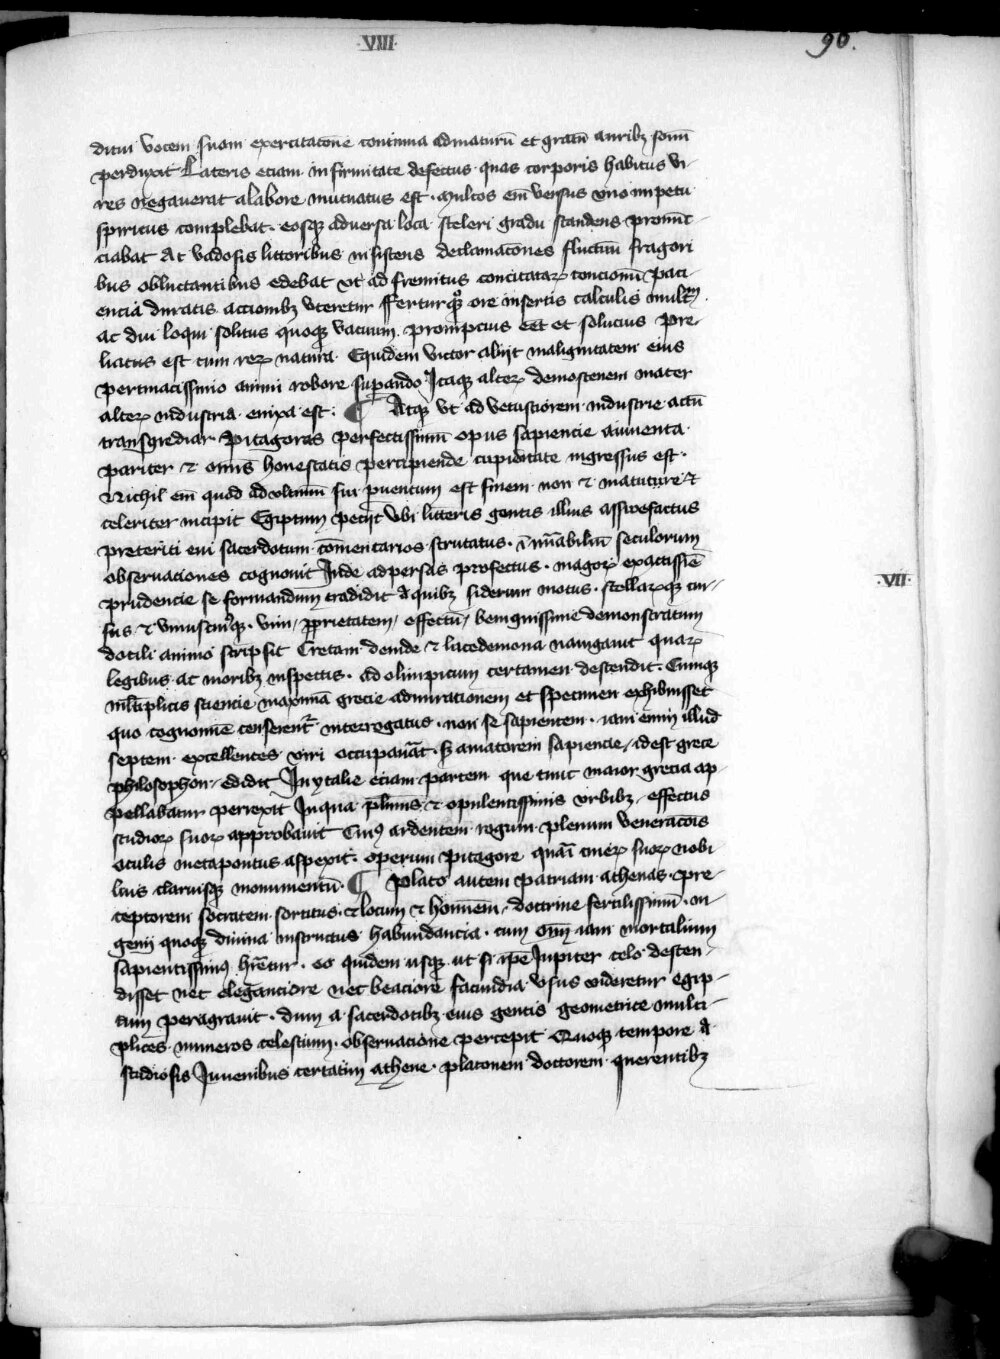 ·VIII·
90.
ditui vocem suam exercitatōne continua ad maturū et gratū auribꝫ sonū
perduxit Lateris etiam infirmitate defectus · quas corporis habitus vi-
res negauerat a labore mutuatus est · multos em̄ versus vno impetu
spiritus complebat · eosqꝫ aduersa loca sceleri gradu scandens pronūc-
ciabat Ac vadosis littoribus insistens declamatōnes fluctuū fragori
bus obluctantibus edebat vt ad fremitus concitataꝝ concionū paci-
encia duratis actionibꝫ vteretur Ferturqꝫ ore insertis calculis multū
ac diu loqui solitus quoqꝫ vacuum promptius eēt et solutius Pre-
liatus est cum reꝝ natura · Equidem victor abijt malignitatem eius
pertinacissimo animi robore supando Itaqꝫ alteꝝ demostenem mater
alteꝝ industria enixa est : ¶ Atqꝫ vt ad vetustiorem industrie actū
transgrediar Pitagoras perfectissimū opus sapiencie a iuuenta
pariter ⁊ omīs honestatis percipiende cupiditate ingressus est ·
Nichil em̄ quod ad vltimū sui puentum est finem non ⁊ mature ⁊
celeriter incipit Egiptum petijt Vbi litteris gentis illius assuefactus
preteriti eui sacerdotum cōmentarios scrutatus · īnūabiliū seculorum
obseruationes cognouit Inde ad persas profectus · magoꝝ exactissīe
prudencie se formandum tradidit A quibꝫ siderum motus · stellaꝝqꝫ cur-
sus ⁊ vniuscuiusqꝫ · vim / ꝓprietatem / effectū / benignissime demonstratum
docili animo scripsit Cretam deinde ⁊ lacedemona nauigauit quaꝝ
legibus ac moribꝫ inspectis · ad olimpicum certamen descendit · Cumqꝫ
mltiplicis sciencie maximā grecie admirationem et specimen exhibuisset
quo cognomine censeretur interrogatus · non se sapientem · iam enim illud
septem excellentes viri occupauāt · sꝫ amatorem sapiencie / idest grece
philosophon / edidit In ytalie etiam partem que tunc maior grecia ap-
pellabatur perrexit In qua plimis ⁊ opulentissimis vrbibꝫ / effectus
studioꝝ suoꝝ approbauit Cuiꝰ ardentem rogum plenum veneratōis
oculis metapontus aspexit · operum pitagore quā cineꝝ suoꝝ nobi
lius clariusqꝫ monumentū · ¶ Plato autem patriam athenas · pre-
ceptorem socratem sortitus · et locum ⁊ hominem / doctrine fertilissimū · in-
genij quoqꝫ diuina instructus habundancia · cum oīm iam mortalium
sapientissimꝰ hretur · eo quidem usqꝫ ut si ipe Iupiter celo descen-
disset nec eleganciore nec beaciore facundia vsus videretur egip-
tum peragrauit · dum a sacerdotibꝫ eius gentis geometrice multi-
plices numeros celestium · obseruatione percepit Quoqꝫ tempore A
studiosis Iuuenibus certatim athene · platonem doctorem querentibꝫ
·VII·